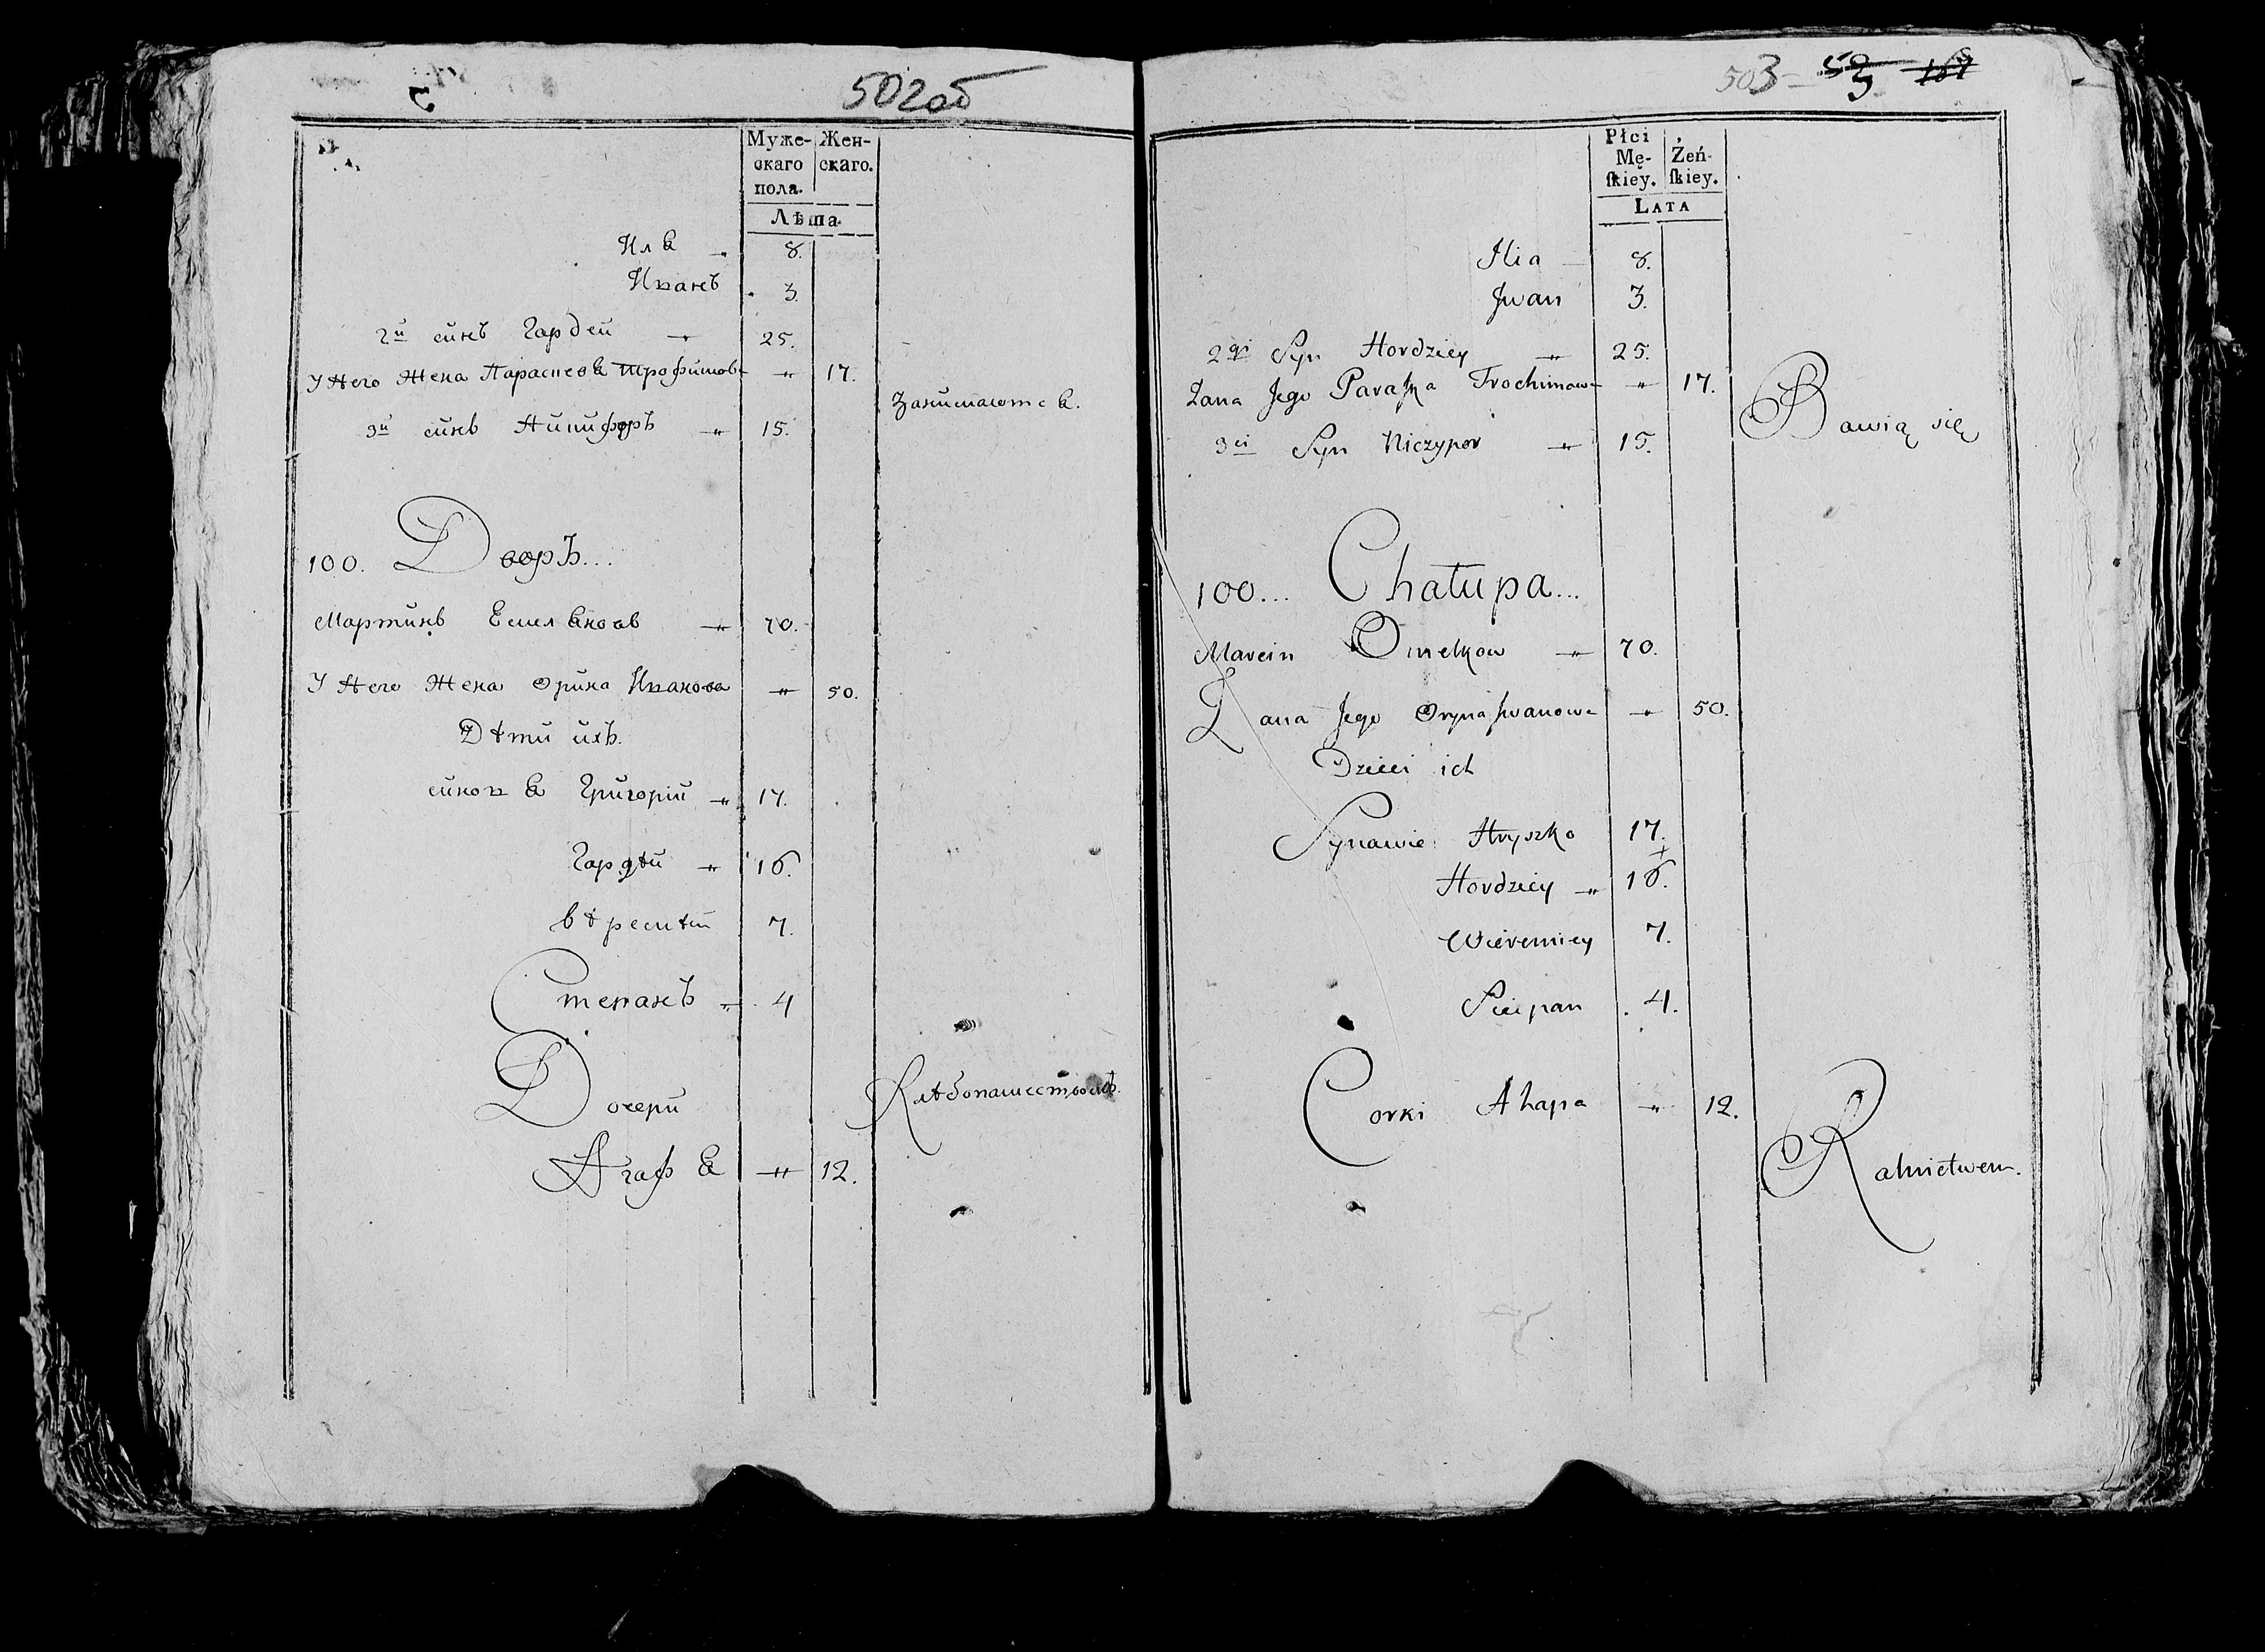 502об
Муже-
скаго
пола.
Жен-
скаго.
Лѣта
Илѧ 8.
Иванъ 3.
2й синъ Гардей 25.
У Него Жена Параскевѧ Трофимов 17.
Занимаютсѧ.
3й синъ Никифоръ 15.
100. Дворъ...
Мартинъ Емелѧновъ 70.
У Него Жена Орина Иванова 50.
Дѣти ихъ.
синовѧ Григорій 17.
Гардѣй 16.
Вѣремѣй 7.
Степанъ 4
Хлѣбопашествомъ.
Дочери
Агафѧ 12.
503
Płci
Mę-
ſkiey.
Żeń-
ſkiey.
LATA
Ilia 8.
Jwan 3.
2gi Syn Hordziey 25.
Żana Jego Paraſka Trochimow 17.
Bawią się
3ci Syn Niczypor 15.
100... Chałupa...
Marcin Omelkow 70.
Żana Jego Oryna Jwanow 50.
Dzieci ich
Synawie Hryszko 17.
Hordziey 16.
Wieremiey 7.
Sciepan 4.
Corki Ahapa 12.
Ralnictwem.